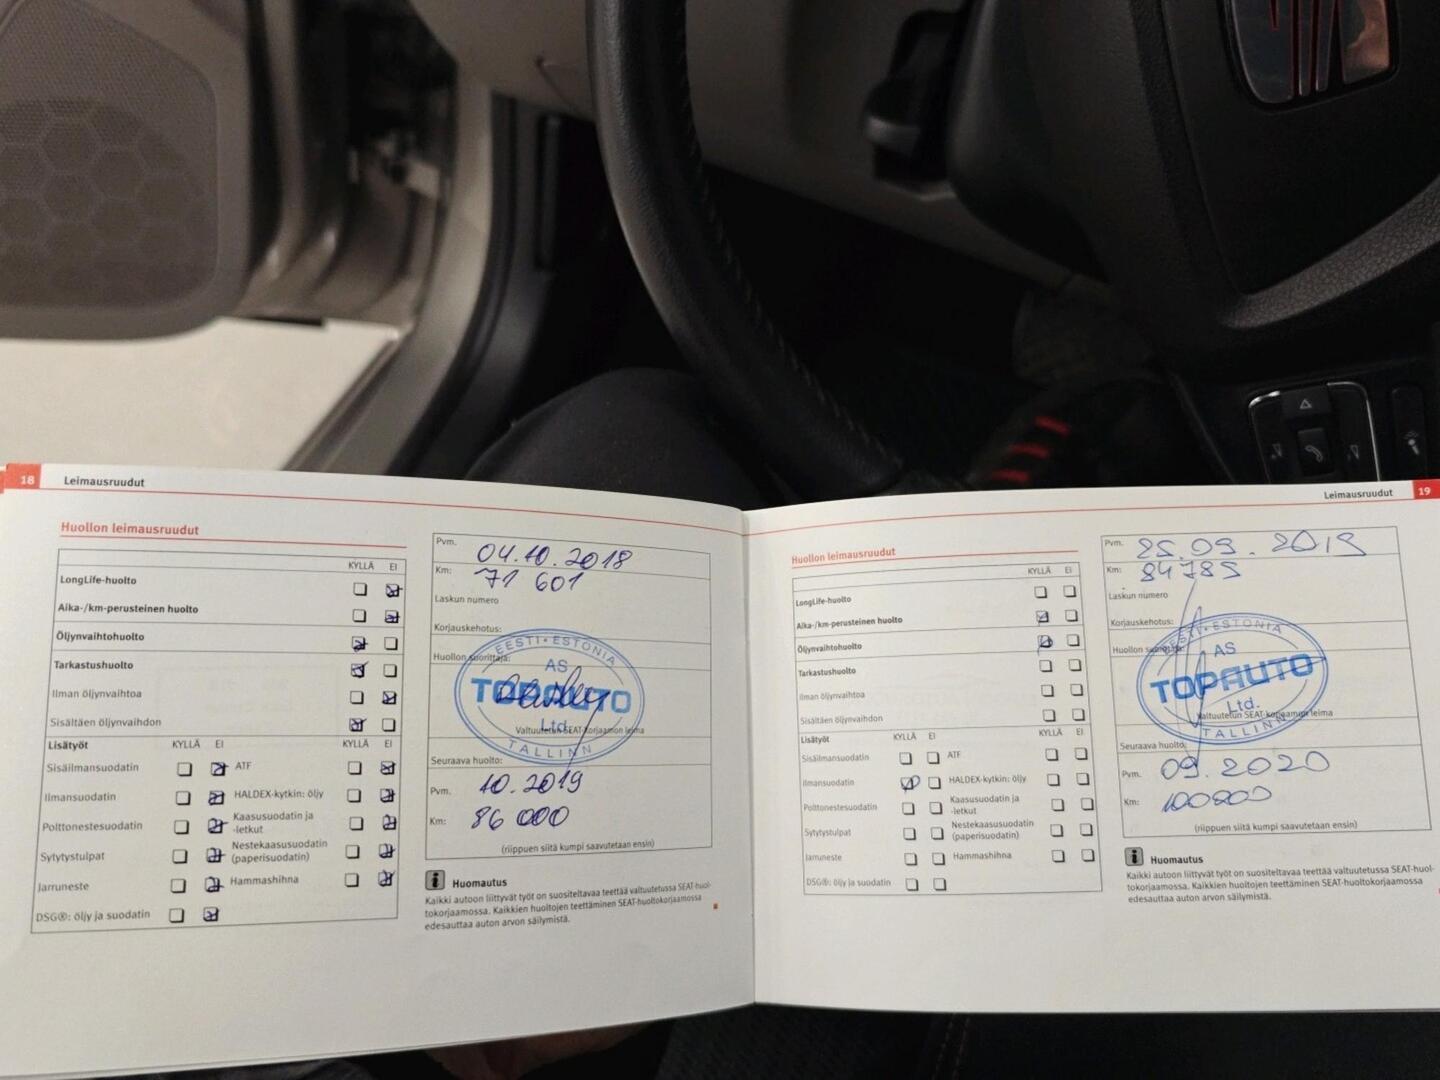 18 Leimausruudut
Huollon leimausruudut
KYLLÄ EI
LongLife-huolto
Aika-/km-perusteinen huolto
Öljynvaihtohuolto
Tarkastushuolto
Ilman öljynvaihtoa
Sisältäen öljynvaihdon
Lisätyöt KYLLÄ EI KYLLÄ EI
Sisäilmansuodatin ATF
Ilmansuodatin HALDEX-kytkin: öljy
Polttonestesuodatin Kaasusuodatin ja
-letkut
Sytytystulpat Nestekaasusuodatin
(paperisuodatin)
Jarruneste Hammashihna
DSG®: öljy ja suodatin
Pvm. 04.10.2018
Km: 71 601
Laskun numero
Korjauskehotus:
Huollon suorittaja:
EESTI • ESTONIA
AS
TOPAUTO
Ltd.
Valtuutetun SEAT-korjaamon leima
TALLINN
Seuraava huolto:
Pvm. 10.2019
Km: 86 000
(riippuen siitä kumpi saavutetaan ensin)
i Huomautus
Kaikki autoon liittyvät työt on suositeltavaa teettää valtuutetussa SEAT-huol-
tokorjaamossa. Kaikkien huoltojen teettäminen SEAT-huoltokorjaamossa
edesauttaa auton arvon säilymistä.
Leimausruudut 19
Huollon leimausruudut
KYLLÄ EI
LongLife-huolto
Aika-/km-perusteinen huolto
Öljynvaihtohuolto
Tarkastushuolto
Ilman öljynvaihtoa
Sisältäen öljynvaihdon
Lisätyöt KYLLÄ EI KYLLÄ EI
Sisäilmansuodatin ATF
Ilmansuodatin HALDEX-kytkin: öljy
Polttonestesuodatin Kaasusuodatin ja
-letkut
Sytytystulpat Nestekaasusuodatin
(paperisuodatin)
Jarruneste Hammashihna
DSG®: öljy ja suodatin
Pvm. 25.09.2019
Km: 84785
Laskun numero
Korjauskehotus:
Huollon suorittaja:
EESTI • ESTONIA
AS
TOPAUTO
Ltd.
Valtuutetun SEAT-korjaamon leima
TALLINN
Seuraava huolto:
Pvm. 09.2020
Km: 100800
(riippuen siitä kumpi saavutetaan ensin)
i Huomautus
Kaikki autoon liittyvät työt on suositeltavaa teettää valtuutetussa SEAT-huol-
tokorjaamossa. Kaikkien huoltojen teettäminen SEAT-huoltokorjaamossa
edesauttaa auton arvon säilymistä.